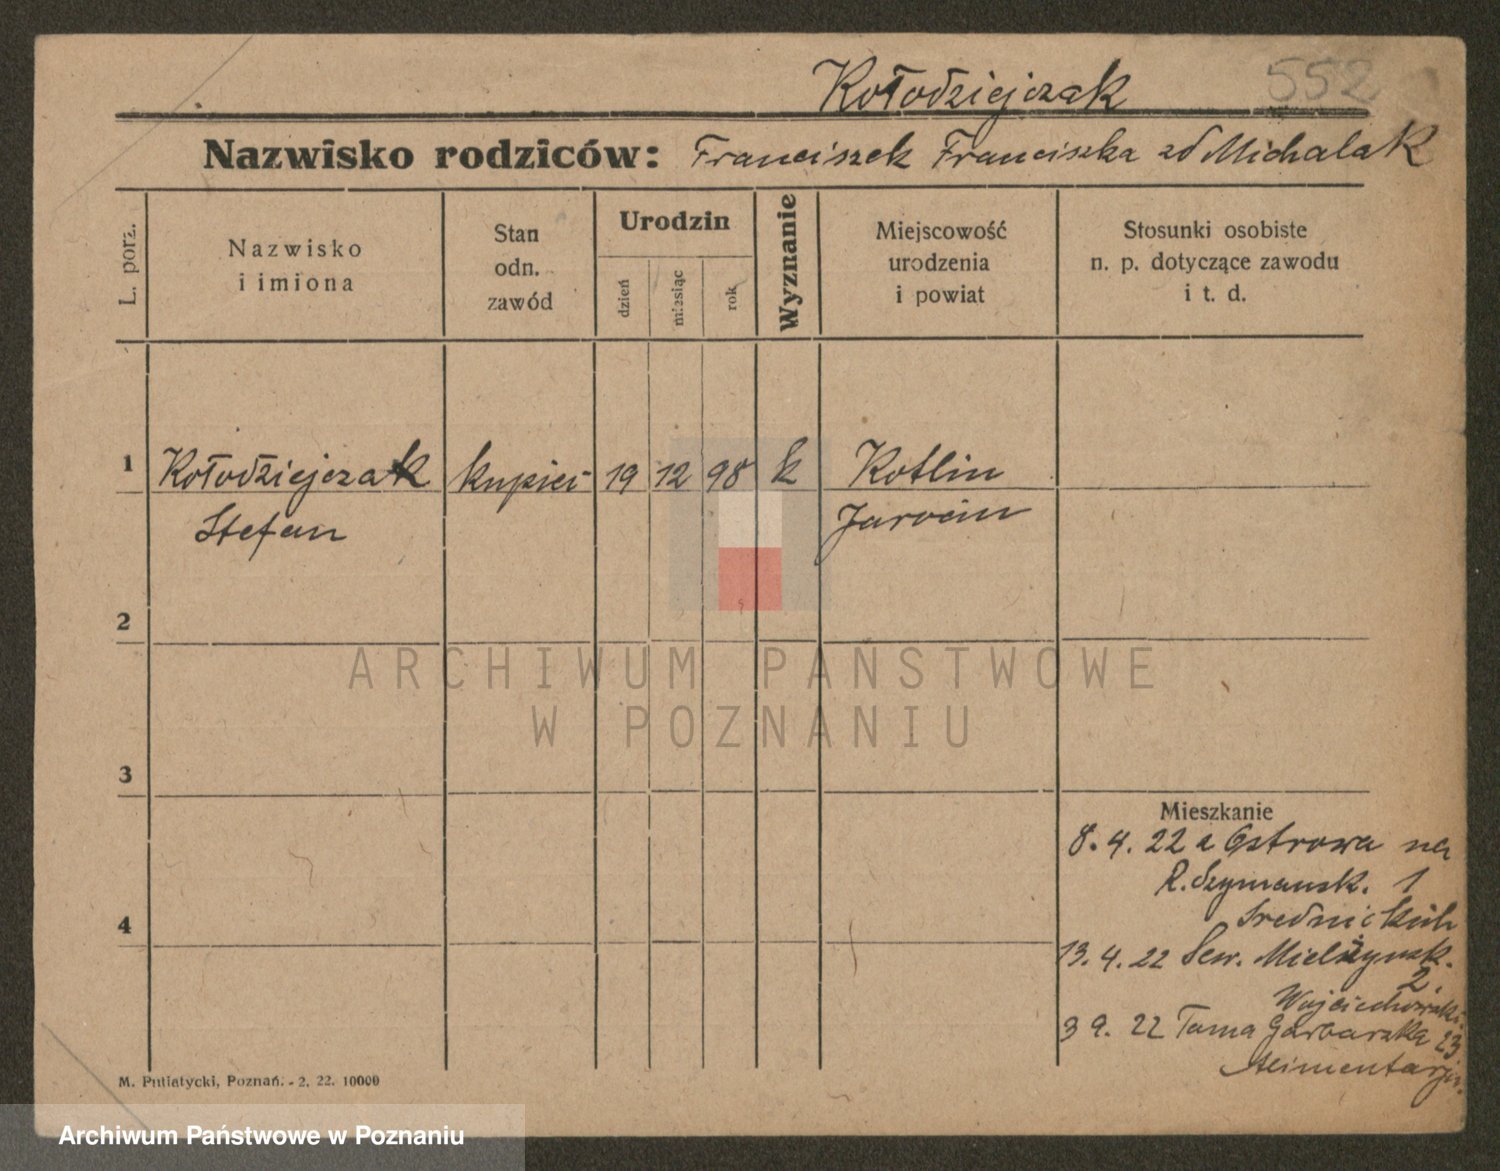 552
Kołodziejczak
Nazwisko rodziców: Franciszek Franciszka zd Michalak
L. porz.
Nazwisko
i imiona
Stan
odn.
zawód
Urodzin
dzień
miesiąc
rok
Wyznanie
Miejscowość
urodzenia
i powiat
Stosunki osobiste
n. p. dotyczące zawodu
i t. d.
1 Kołodziejczak kupiec 19 12 98 k Kotlin
Stefan Jarocin
2
3
4
ARCHIWUM PAŃSTWOWE
W POZNANIU
Mieszkanie
8. 4. 22 z Ostrowa na
R. Szymansk. 1
Średnickich
13. 4. 22 Sew. Mielżynsk.
2.
Wojciechowski
3 9. 22 Tama Garbarska 23
M. Putiatycki, Poznań. - 2. 22. 10000
Archiwum Państwowe w Poznaniu